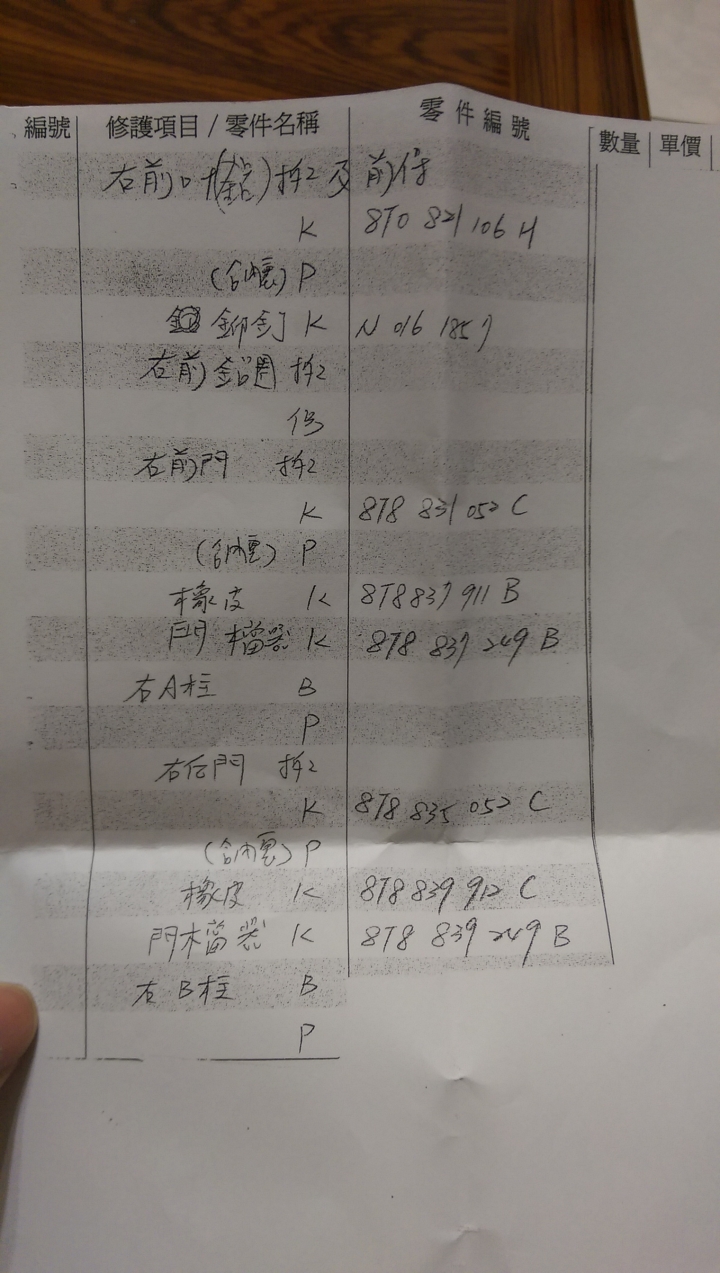 編號 修護項目 / 零件名稱 零件編號 數量 單價
右前叶(鋁)拆工及前保
K 8T0 821 106 H
(含內塗) P
鉚釘 K N 016 185 7
右前鋁圈 拆工
修
右前門 拆工
K 8T8 831 052 C
(含內塗) P
橡皮 K 8T8 837 911 B
門檔器 K 8T8 837 249 B
右A柱 B
P
右后門 拆工
K 8T8 835 052 C
(含內塗) P
橡皮 K 8T8 839 912 C
門檔器 K 8T8 839 249 B
右B柱 B
P